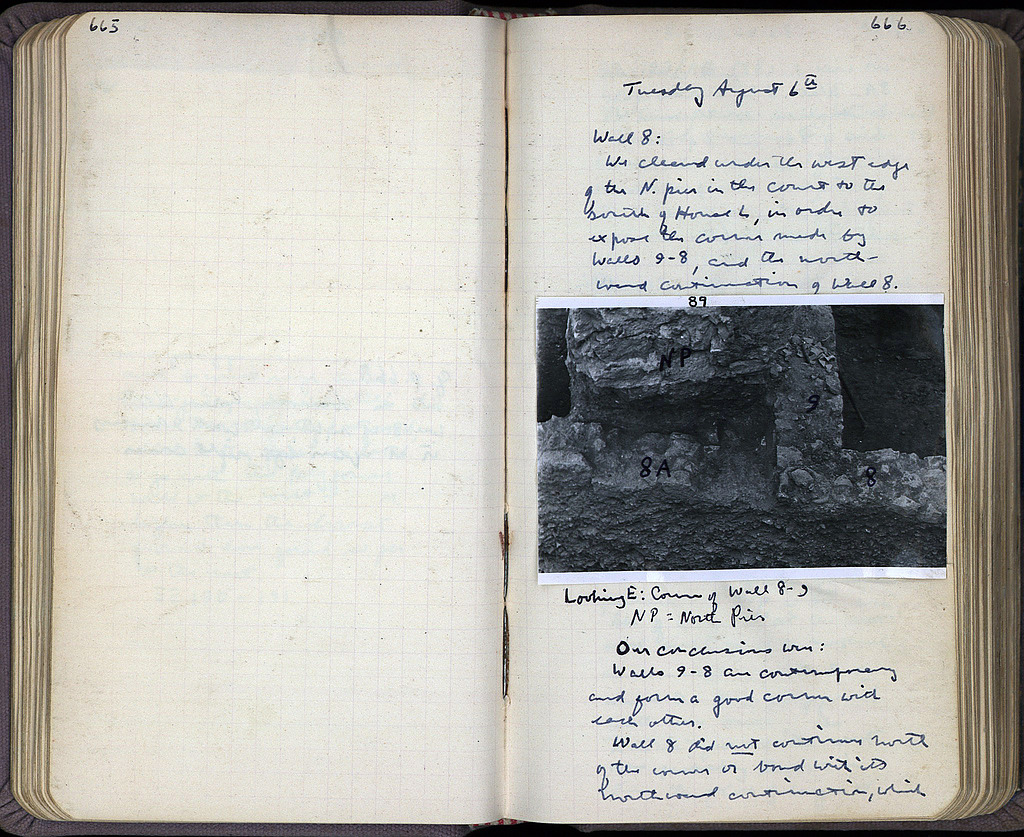 665
666
Tuesday August 6th
Wall 8:
We cleared under the west edge
of the N. pier in the court to the
South of House L, in order to
expose the corner made by
Walls 9-8, and the north-
ward continuation of Wall 8.
89
NP
9
8A
8
Looking E: Corner of Wall 8-9
NP = North Pier
Our conclusions were:
Walls 9-8 are contemporary
and form a good corner with
each other.
Wall 8 did not continue north
of the corner or bond with its
northward continuation, which